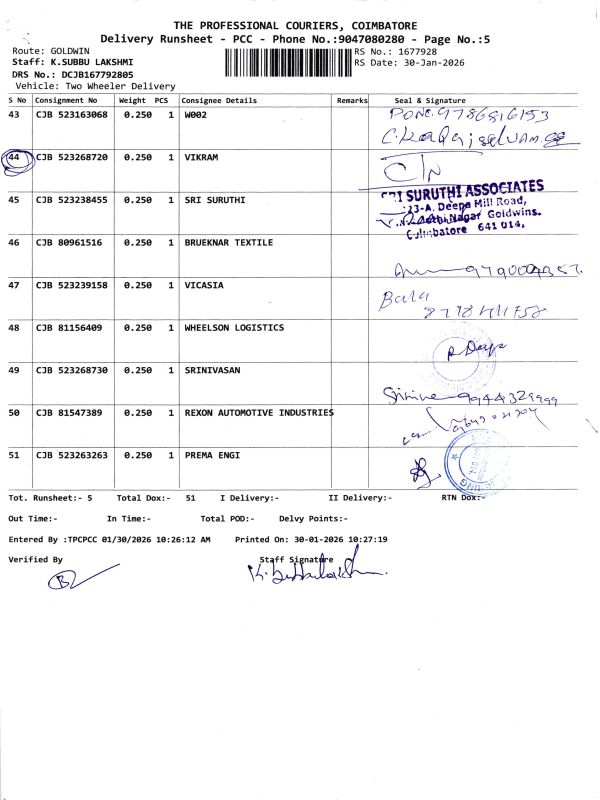 THE PROFESSIONAL COURIERS, COIMBATORE
Delivery Runsheet - PCC - Phone No.:9047080280 - Page No.:5
Route: GOLDWIN RS No.: 1677928
Staff: K.SUBBU LAKSHMI RS Date: 30-Jan-2026
DRS No.: DCJB167792805
Vehicle: Two Wheeler Delivery
S No Consignment No Weight PCS Consignee Details Remarks Seal & Signature
43 CJB 523163068 0.250 1 W002
44 CJB 523268720 0.250 1 VIKRAM
45 CJB 523238455 0.250 1 SRI SURUTHI
SRI SURUTHI ASSOCIATES
23-A, Deepa Mill Road,
Nagar Goldwins.
Coimbatore 641 014.
46 CJB 80961516 0.250 1 BRUEKNAR TEXTILE
47 CJB 523239158 0.250 1 VICASIA
Bala
48 CJB 81156409 0.250 1 WHEELSON LOGISTICS
49 CJB 523268730 0.250 1 SRINIVASAN
50 CJB 81547389 0.250 1 REXON AUTOMOTIVE INDUSTRIES
51 CJB 523263263 0.250 1 PREMA ENGI
Tot. Runsheet:- 5 Total Dox:- 51 I Delivery:- II Delivery:- RTN Dox:-
Out Time:- In Time:- Total POD:- Delvy Points:-
Entered By :TPCPCC 01/30/2026 10:26:12 AM Printed On: 30-01-2026 10:27:19
Verified By Staff Signature